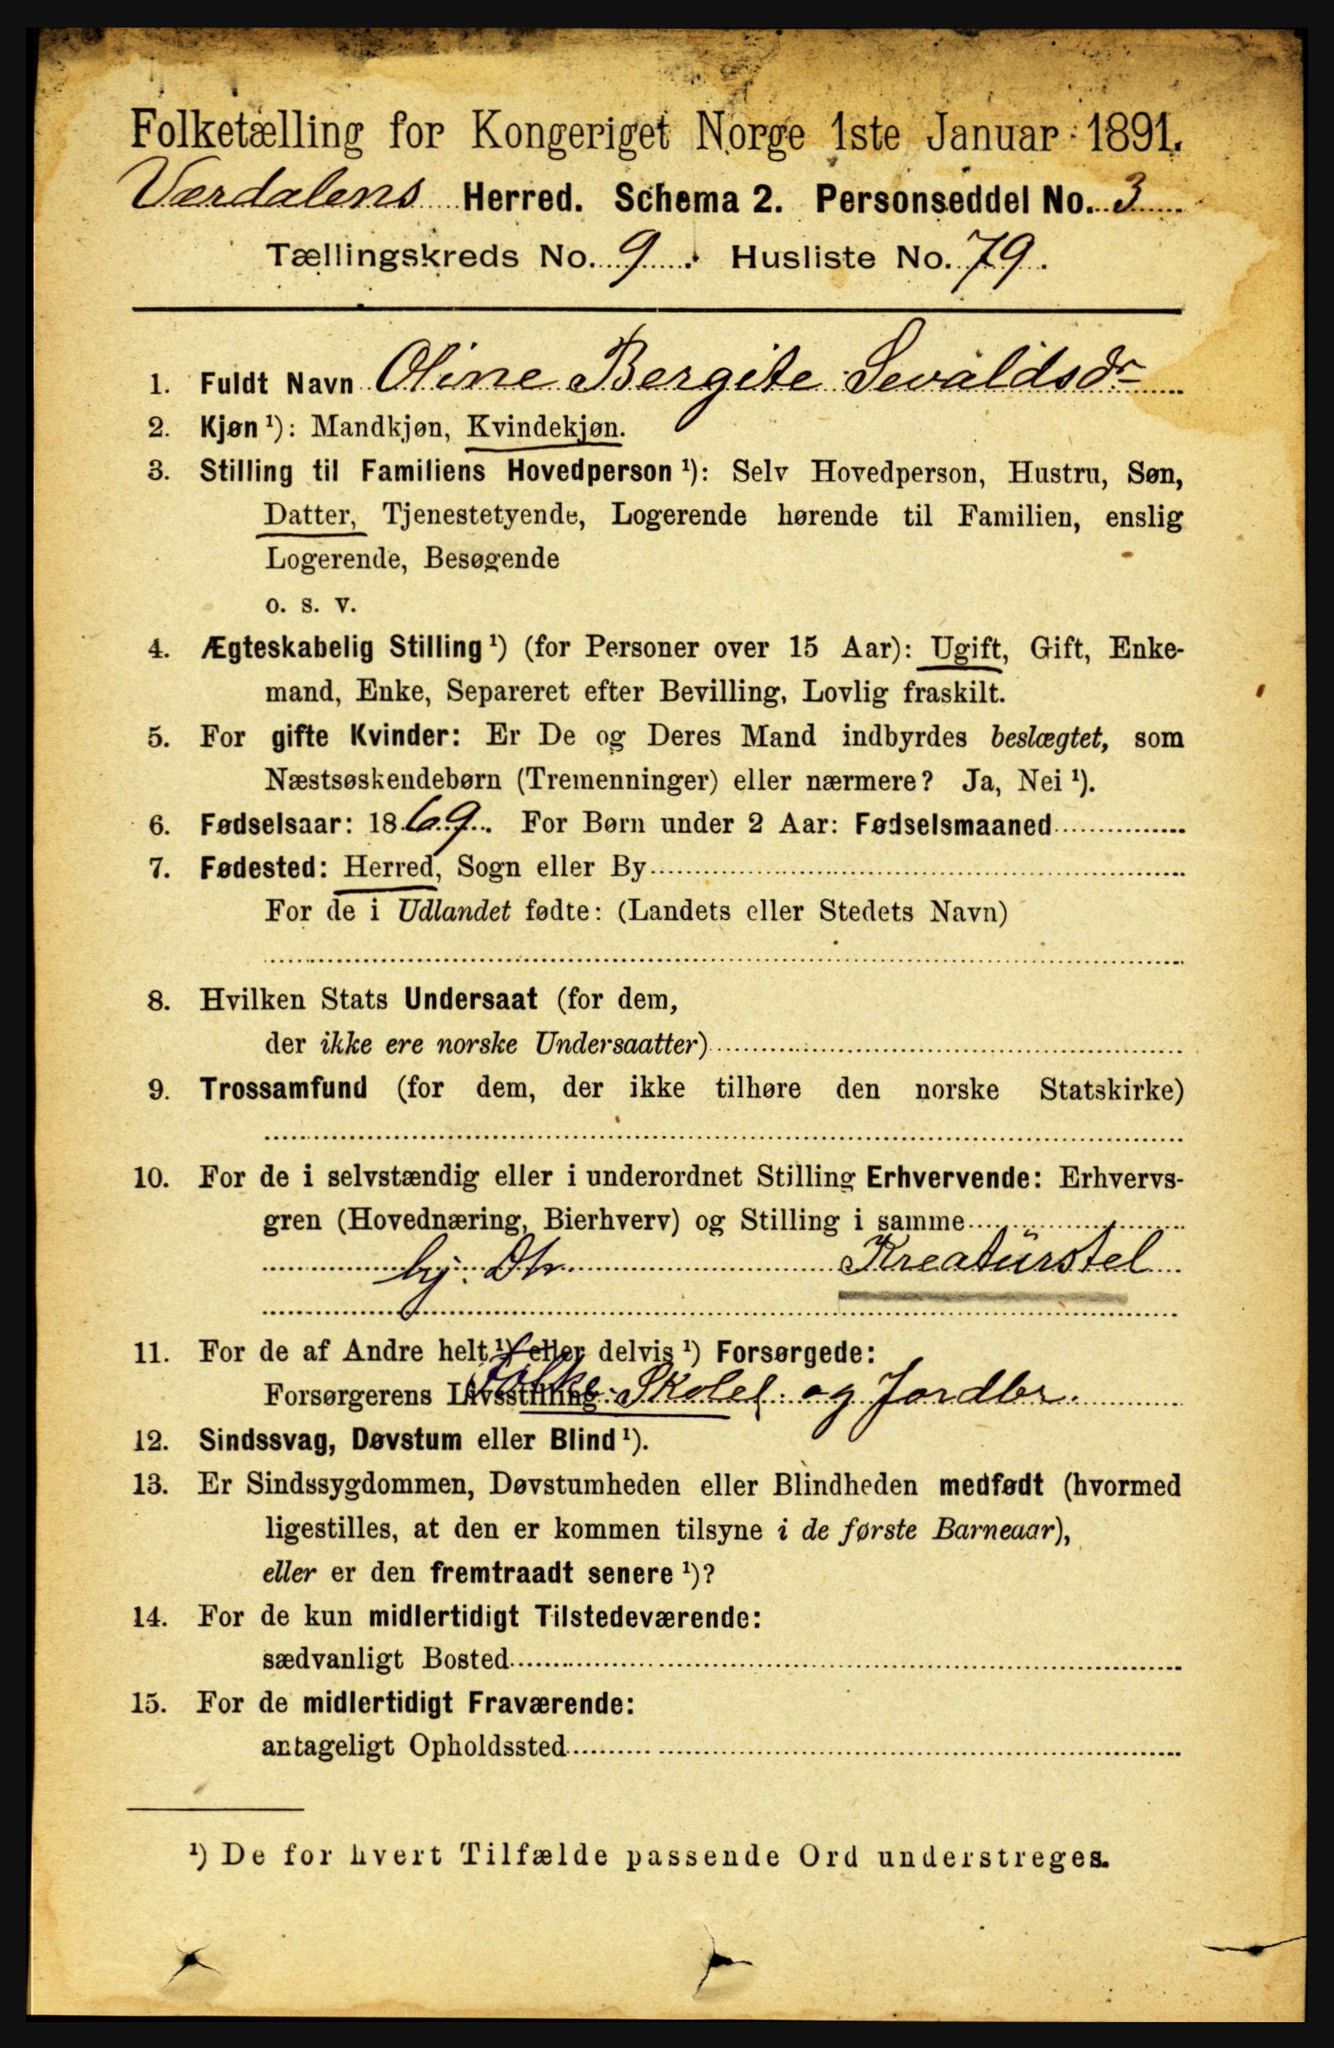 Folketælling for Kongeriget Norge 1ste Januar 1891.
Værdalens Herred. Schema 2. Personseddel No. 3
Tællingskreds No. 9. Husliste No. 79.
1. Fuldt Navn Oline Bergite Sevaldsdr
2. Kjøn ¹): Mandkjøn, Kvindekjøn.
3. Stilling til Familiens Hovedperson ¹): Selv Hovedperson, Hustru, Søn,
Datter, Tjenestetyende, Logerende hørende til Familien, enslig
Logerende, Besøgende
o. s. v.
4. Ægteskabelig Stilling ¹) (for Personer over 15 Aar): Ugift, Gift, Enke-
mand, Enke, Separeret efter Bevilling, Lovlig fraskilt.
5. For gifte Kvinder: Er De og Deres Mand indbyrdes beslægtet, som
Næstsøskendebørn (Tremenninger) eller nærmere? Ja, Nei ¹).
6. Fødselsaar: 1869. For Børn under 2 Aar: Fødselsmaaned
7. Fødested: Herred, Sogn eller By
For de i Udlandet fødte: (Landets eller Stedets Navn)
8. Hvilken Stats Undersaat (for dem,
der ikke ere norske Undersaatter)
9. Trossamfund (for dem, der ikke tilhøre den norske Statskirke)
10. For de i selvstændig eller i underordnet Stilling Erhvervende: Erhvervs-
gren (Hovednæring, Bierhverv) og Stilling i samme
hj. Dtr Kreatürstel
11. For de af Andre helt ¹) eller delvis ¹) Forsørgede:
Forsørgerens Livsstilling Folke Skolel. og Jordbr.
12. Sindssvag, Døvstum eller Blind ¹).
13. Er Sindssygdommen, Døvstumheden eller Blindheden medfødt (hvormed
ligestilles, at den er kommen tilsyne i de første Barneaar),
eller er den fremtraadt senere ¹)?
14. For de kun midlertidigt Tilstedeværende:
sædvanligt Bosted
15. For de midlertidigt Fraværende:
antageligt Opholdssted
¹) De for hvert Tilfælde passende Ord understreges.